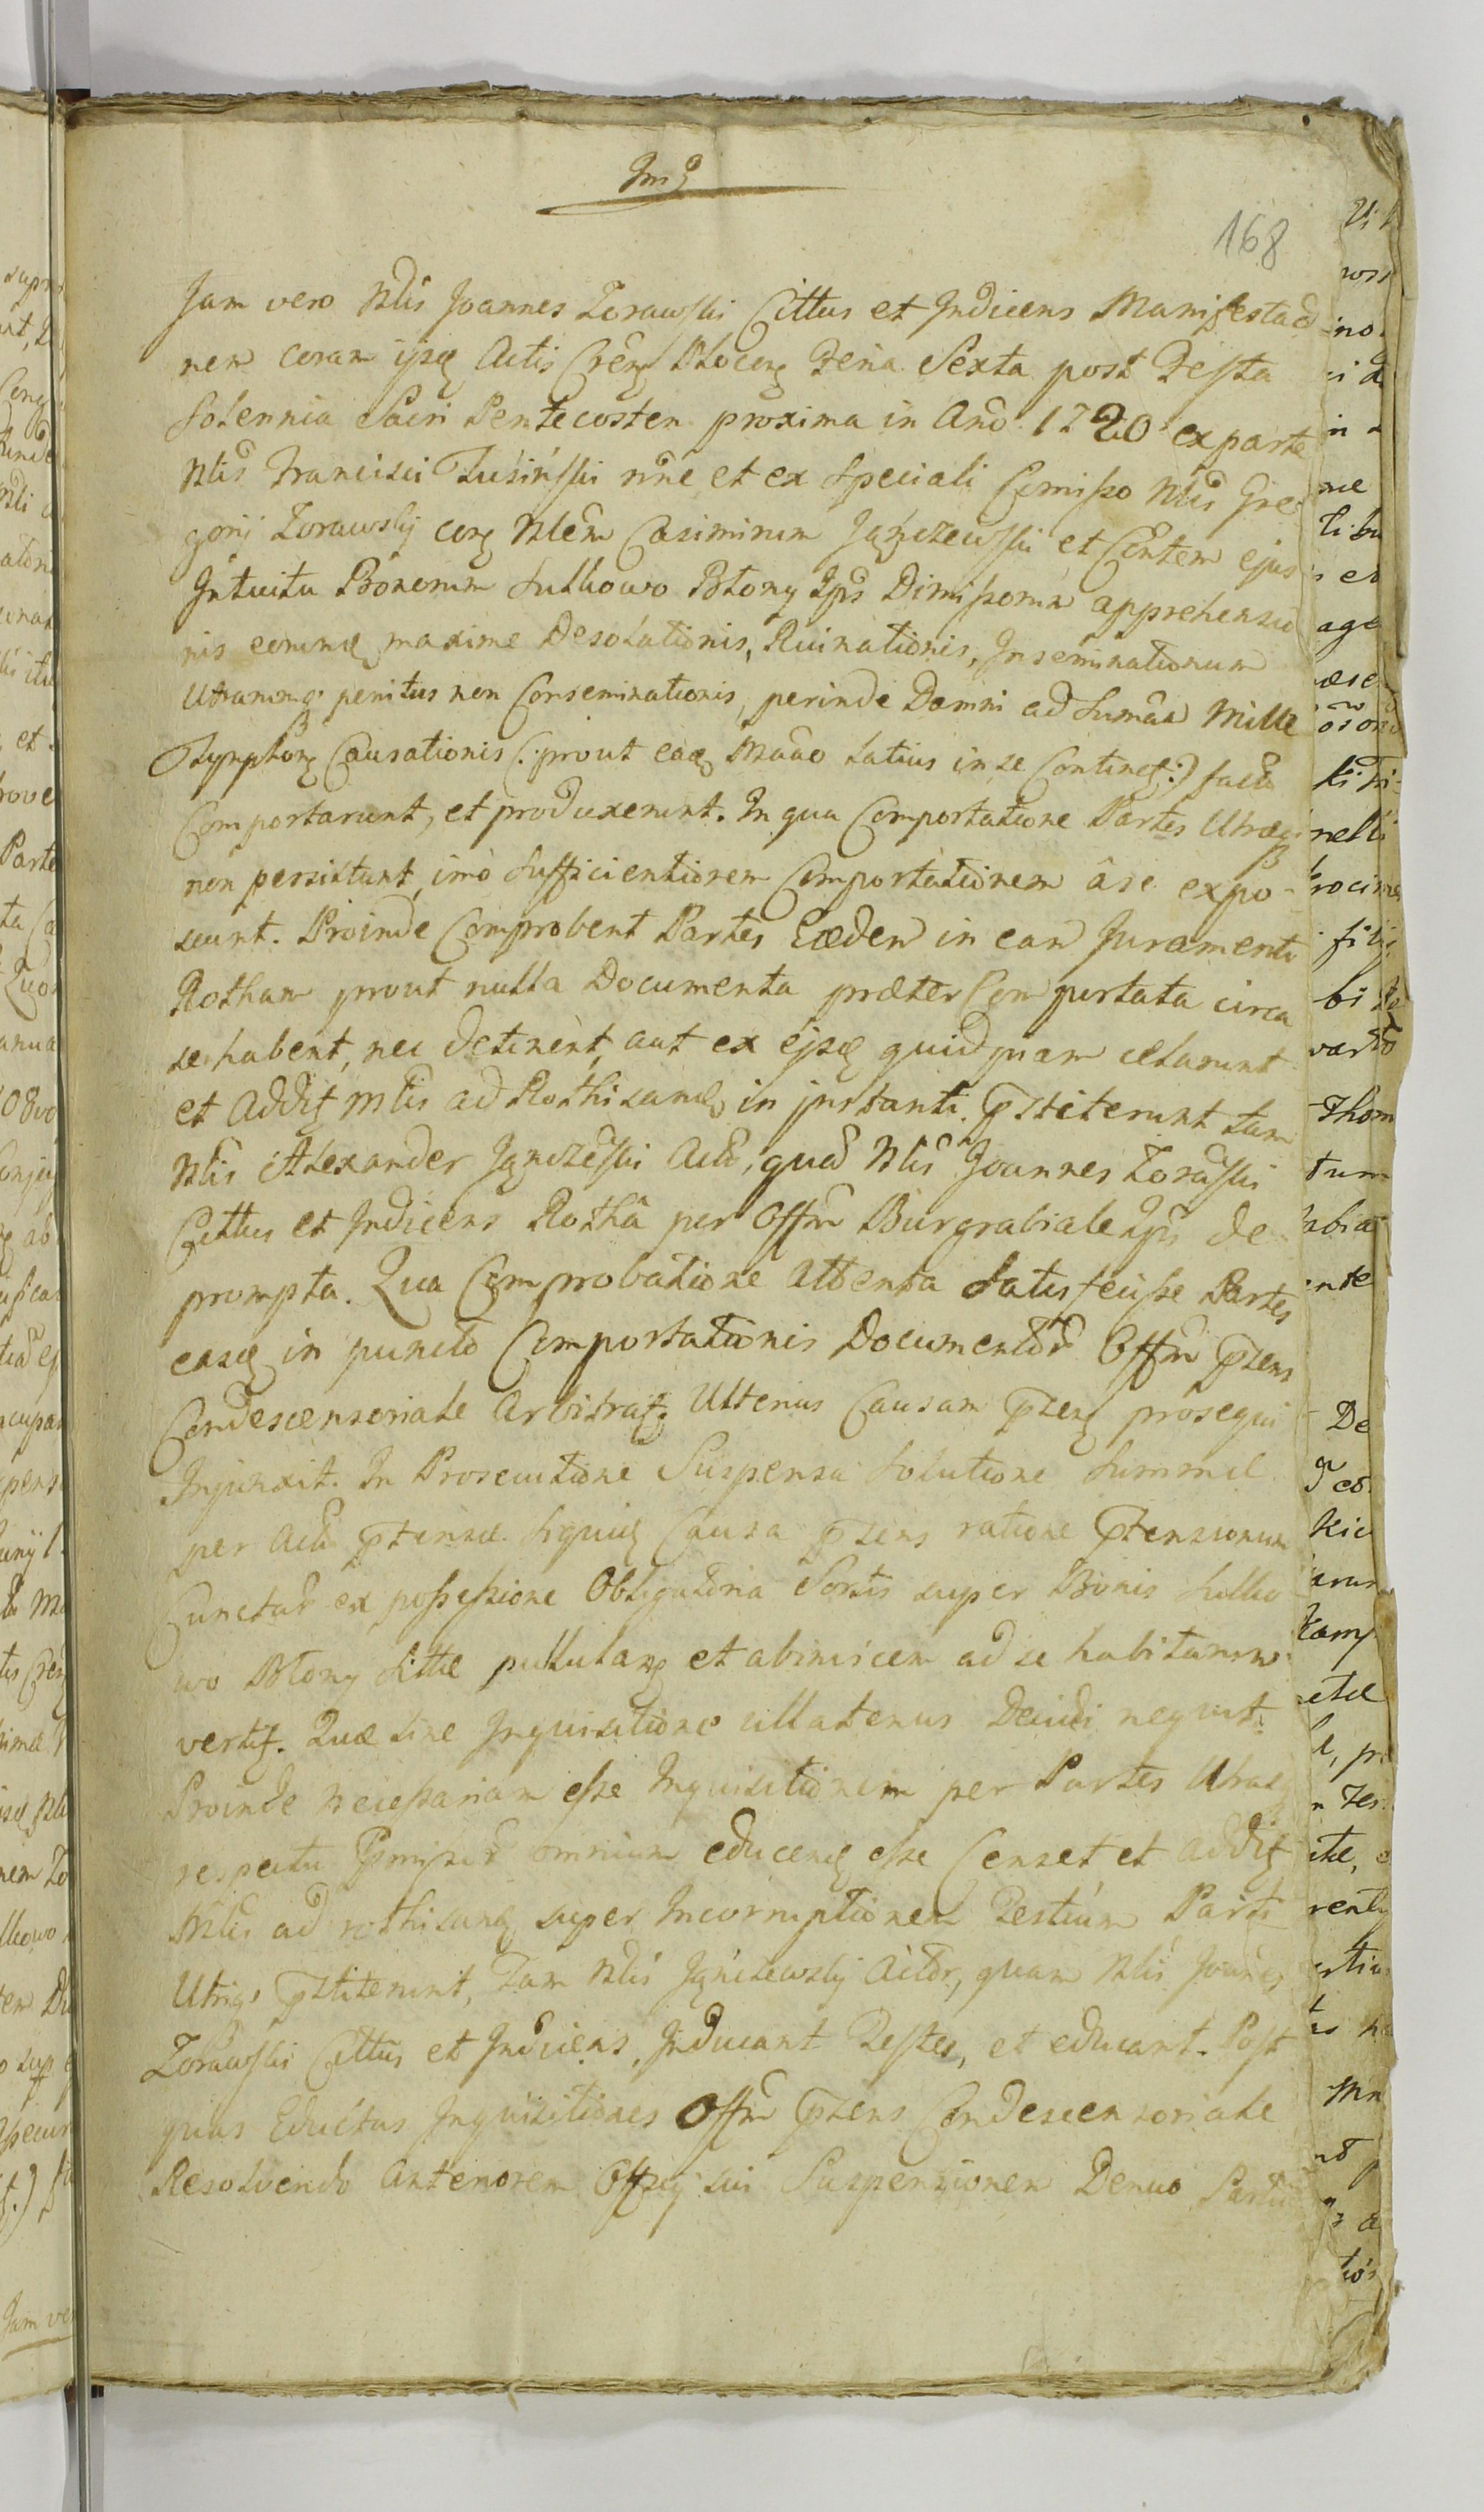 168
Jam vero Nblis Joannes Zorawski Cittus et Indicens Manifestao
nem coram ijsq Actis Cren Plocen Feria Sexta post Festa
Solennia Sacri Pentecosten proxima in Ano 1720 ex parte
Nblis Francisci Tusinski nne et ex Speciali Comisso Nblis Gre
gorij Zorawskj con Nblem Casimirum Jgniczewski et Contem ejus
Intuitu Bonorum Sulkowo Btony Ips Dimissorum apprehensio
nis eorumq maxime Desolationis, Ruinationis, Inseminationum
Utranmq penitus non Conseminationis, perinde Damni ad Sumam Mille
Tymphon Causationis (: prout eaq Maao latius in se Continet :) fact
Comportarunt, et produxerunt. In qua Comportatione Partes Utraeq
non persistunt, imò Sufficientiorem Comportationem a se expo-
scunt. Proinde Comprobent Partes Eædem in eam Juramenti
Rotham prout nulla Documenta præter Comportata circa
se habent, nec detinent, aut ex ejsq quidquam celarunt
et Addit Mlis ad Rothisandq in instanti pstiterunt tam
Nblis Alexander Jgniczeski Actr, quam Nblis Joannes Zoraski
Cittus et Indicens Rothâ per Offm Burgrabiale Ips de
prompta. Qua Comprobatione attenta Satisfecisse Partes
easq in puncto Comportationis Documentor Offm psens
Condescensoriale Arbitrat. Ulterius Causam psen prosequi
Injunxit. In Prosecutione Suspensa Solutione Summæ
per Actr ptensæ Siquiq Causa psens ratione ptensionum
Cunctar ex possessione Obligatoria Sortis super Bonis Sulko
wo Btony Sittæ pullulan et abinvicem ad se habitarum
vertit. Quæ sine Inquisitione ullatenus Decidi nequit.
Proinde necessariam esse Inquisitionem per Partes Utrasq
respectu pmissor omnium educend esse Censet et addit
Mlis ad rothisand super Incorruptionem Testium Parti
Utriq pstiterunt, Tam Nblis Jgniczewskj Actor, quam Nblis Joanes
Zorawski Cittus et Indicens, Inducant Testes, et educant. Post
quas Eductas Inquisitiones Offm psens Condescensoriale
Resolvendo Anteriorem Offij sui Suspensionem Denuo Partium